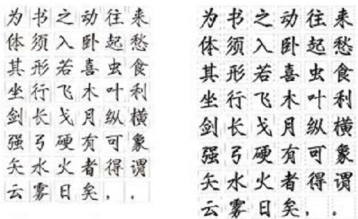 为书之动往来
体须入卧起愁
其形若喜虫食
坐行飞木叶利
剑长戈月纵横
强弓硬有可象
矢水火者得谓
云雾日矣，，
为书之动往来
体须入卧起愁
其形若喜虫食
坐行飞木叶利
剑长戈月纵横
强弓硬有可象
矢水火者得谓
云雾日矣，，